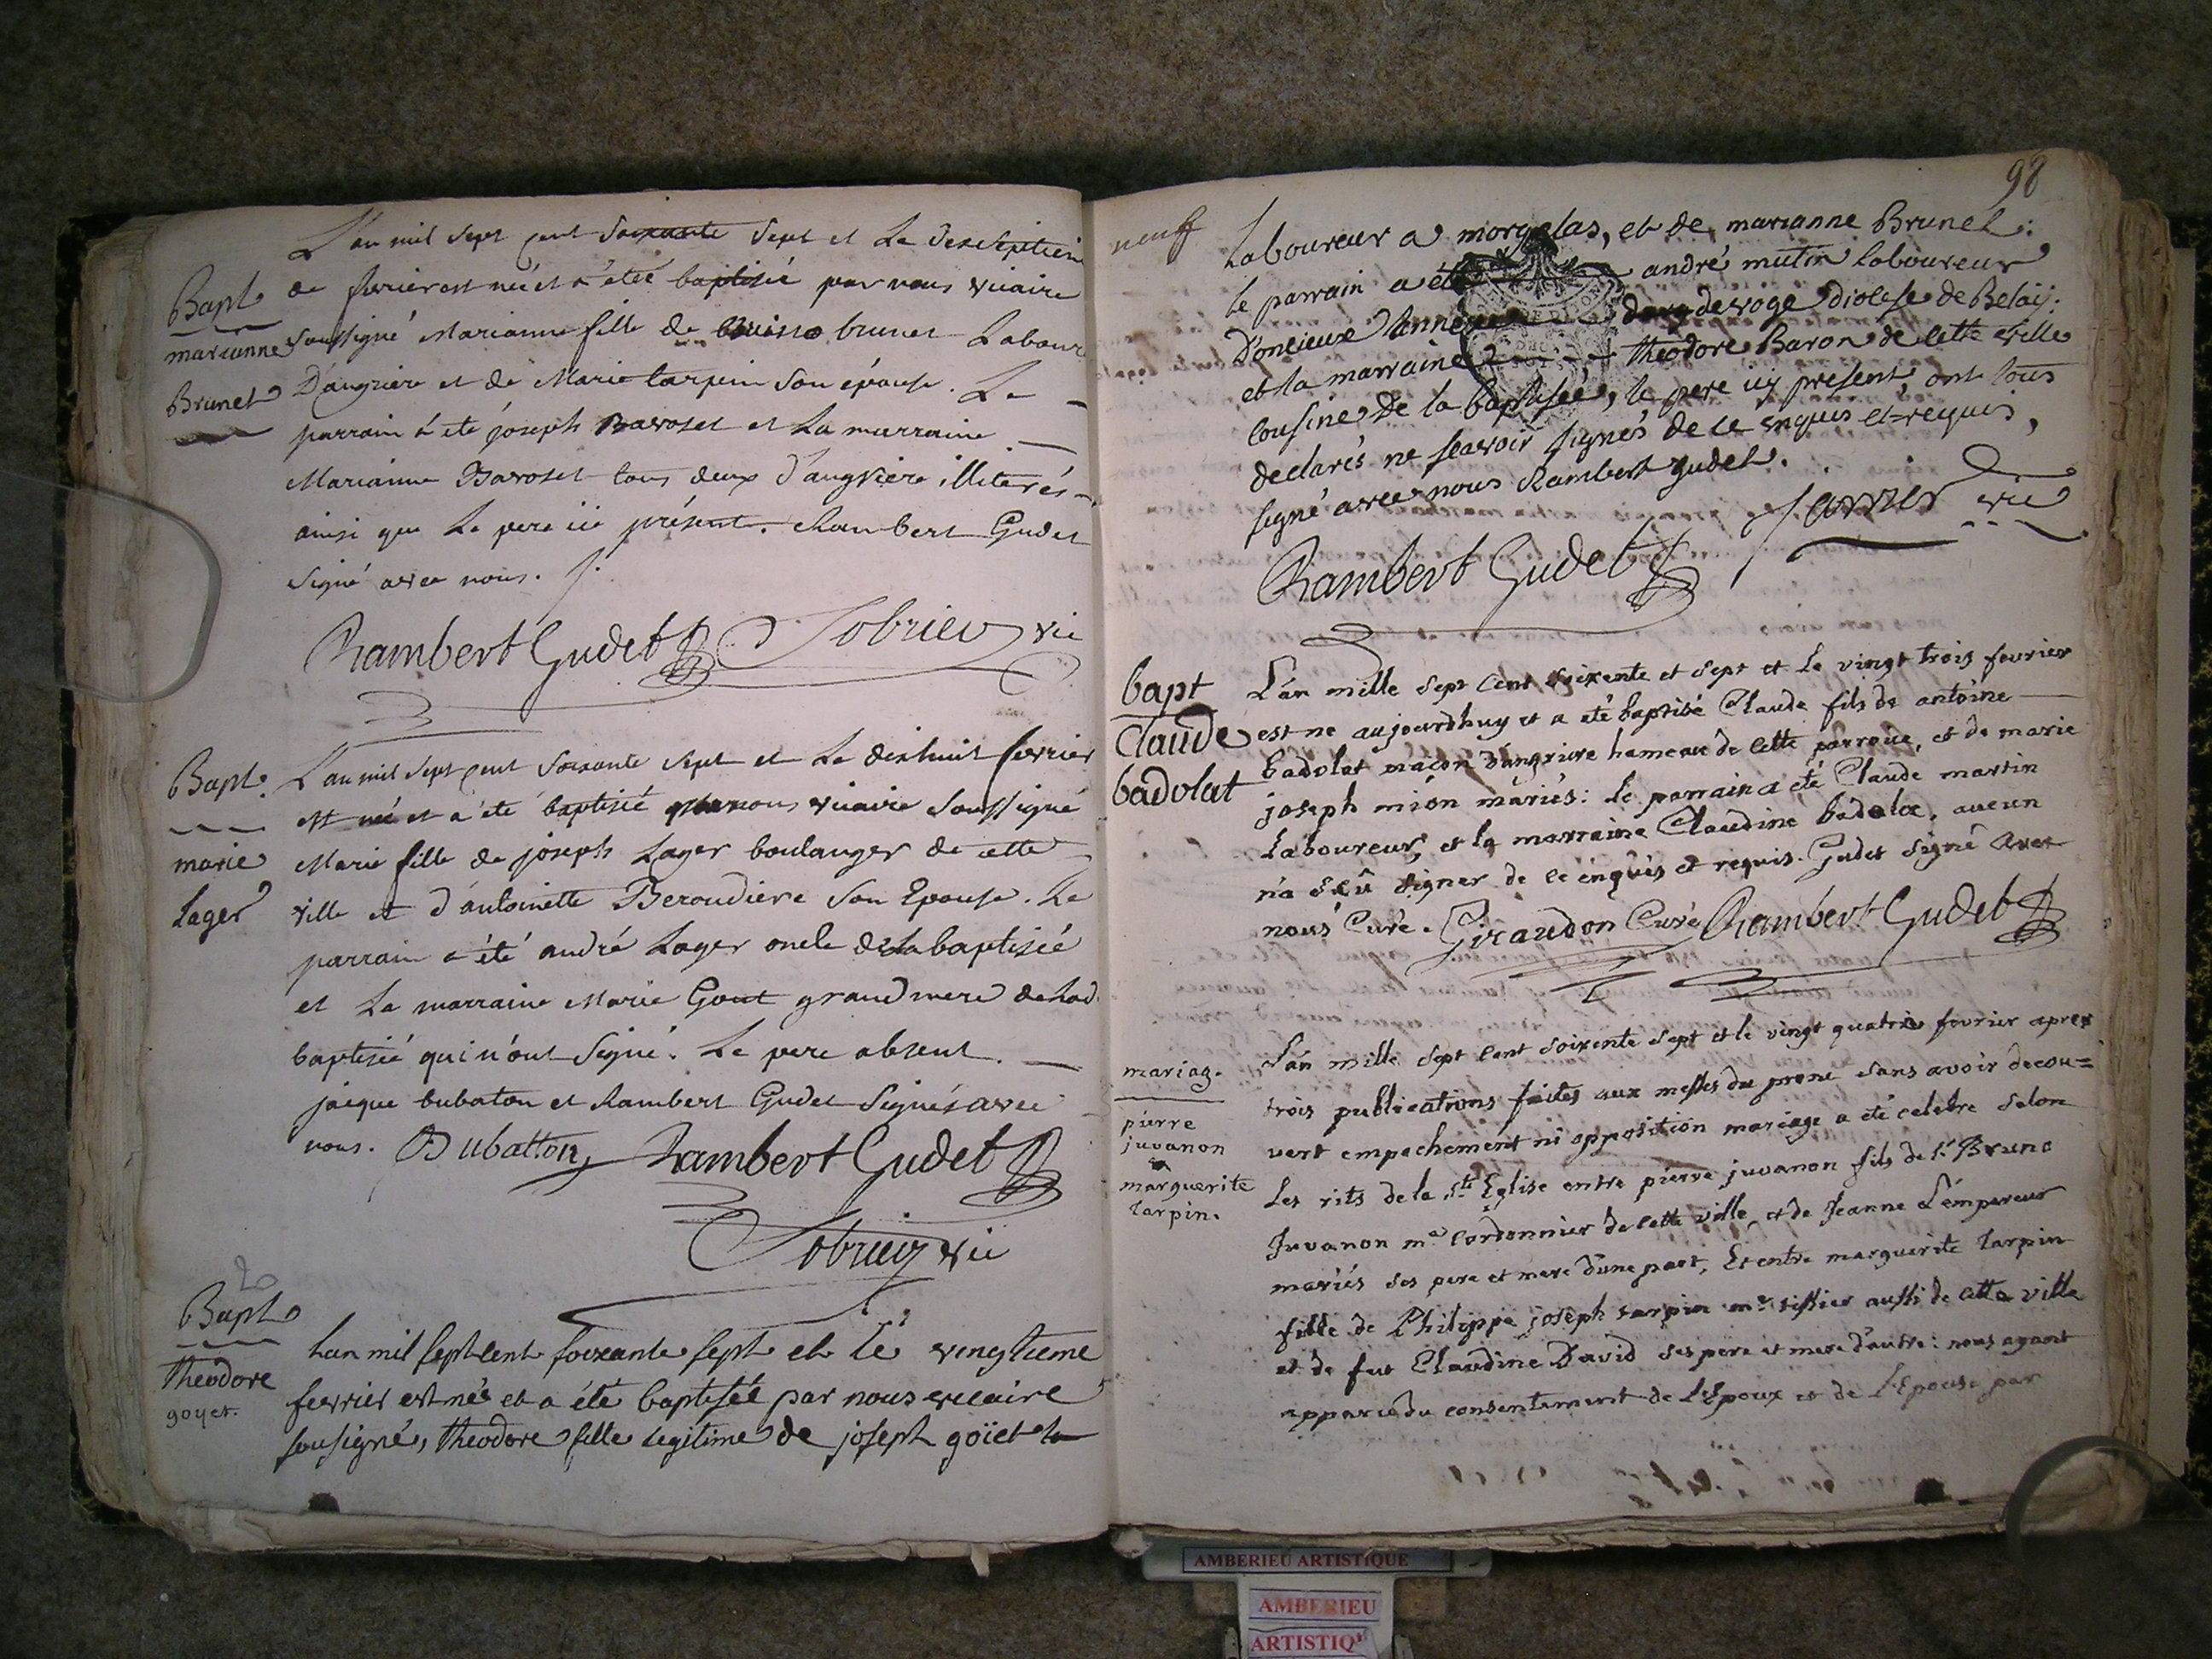 L'an mil sept cent soixante sept et Le dixseptiem
Bapt
de fevrier est née et a été baptisée par nous vicaire
marianne
soussigné Marianne fille de brunet Labour
Brunet
D'angriere et de Marie tarpin son épouse. Le
parrain a été joseph Bavoset et La marraine
Marianne Bavoset tous deux d'angriere illiterés
ainsi que Le pere ici présent. Rambert Gudet
Signé avec nous.
Rambert Gudet Sobrier vic
Bapt.
marie
Lager
L'an mil sept cent soixante sept et Le dixhuit fevrier
est née et a été baptisée par nous vicaire soussigné
Marie fille de joseph Lager boulanger de cette
ville et d'antoinette Beroudiere son Epouse. Le
parrain a été andré Lager oncle de la baptisée
et La marraine Marie Gout grand mere de lad
baptisée qui n'ont signé. Le pere absent.
jacque bubaton et Rambert Gudet Signés avec
nous. Dubatton Rambert Gudet
Sobrier vic
Bapt
theodore
goyet.
Lan mil sept cent soixante sept et le vingtieme
fevrier est née et a été baptisée par nous vicaire
sousigné, theodore fille legitime de joseph goïet
98
neuf
Laboureur a morgelas, et de marianne Brunet:
le parrain a été andré mutin laboureur
D'oncieux annexe de voge diocese de Belaÿ:
et la marraine theodore Baron de cette ville
cousine de la baptisée, le pere icy present, ont tous
declarés ne scavoir signés de ce enquis et requis,
signé avec nous Rambert gudet.
Rambert Gudet vic
bapt
Claude
badolat
L'an mille sept cent soixente et sept et le vingt trois fevrier
est ne aujourdhuy et a eté baptisé Claude fils de antoine
badolat maçon d'angriere hameau de cette parroice, et de marie
joseph mion mariés: le parrain a eté Claude martin
Laboureur, et la marraine Claudine badolat, aucun
n'a sçû signer de ce enquis et requis. Gudet signé avec
nous Curé. Giraudon Curé Rambert Gudet
mariag.
pierre
juvanon
marguerite
tarpin.
L'an mille sept cent soixente sept et le vingt quatrie fevrier apres
trois publications faites aux messes du prone sans avoir decou=
vert empechement ni opposition mariage a eté celebre selon
Les rits de la ste Eglise entre pierre juvanon fils de sr Bruno
Juvanon me Cordonnier de cette ville, et de Jeanne L'empereur
mariés ses pere et mere d'une part, Et entre marguerite tarpin
fille de Philippe joseph tarpin me tissier aussi de cette ville
et de feu Claudine David ses pere et mere d'autre: nous ayant
apparu du consentement de L'Epoux et de L'Epouse par
AMBERIEU ARTISTIQUE
AMBERIEU
ARTISTIQ